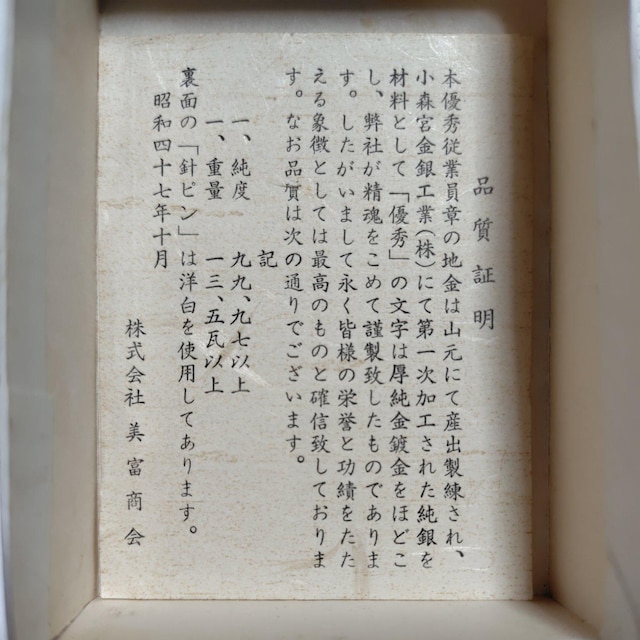 品質証明
本優秀従業員章の地金は山元にて産出製練され、
小森宮金銀工業(株)にて第一次加工された純銀を
材料として「優秀」の文字は厚純金鍍金をほどこ
し、弊社が精魂をこめて謹製致したものでありま
す。したがいまして永く皆様の栄誉と功績をたた
える象徴としては最高のものと確信致しておりま
す。なお品質は次の通りでございます。
記
一、純度 九九、九七以上
一、重量 一三、五瓦以上
裏面の「針ピン」は洋白を使用してあります。
昭和四十七年十月
株式会社 美富商会